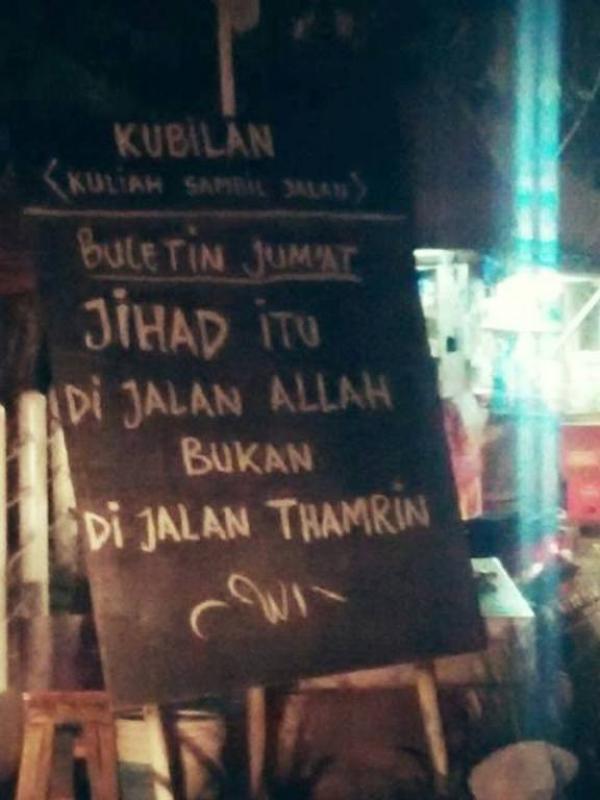 KUBiLAN
(KULIAH SAMBIL JALAN)
BULETiN JUM'AT
JiHAD iTU
Di JALAN ALLAH
BUKAN
Di JALAN THAMRiN
~Wi~